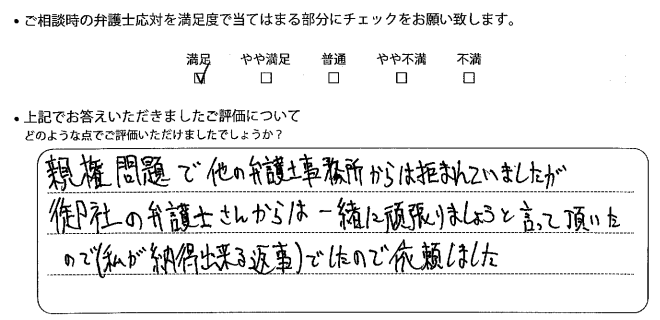 • ご相談時の弁護士応対を満足度で当てはまる部分にチェックをお願い致します。
満足 やや満足 普通 やや不満 不満
☑ □ □ □ □
• 上記でお答えいただきましたご評価について
どのような点でご評価いただけましたでしょうか？
親権問題で他の弁護士事務所からは拒まれていましたが
御社の弁護士さんからは一緒に頑張りましょうと言って頂いた
ので(私が納得出来る返事)でしたので依頼しました